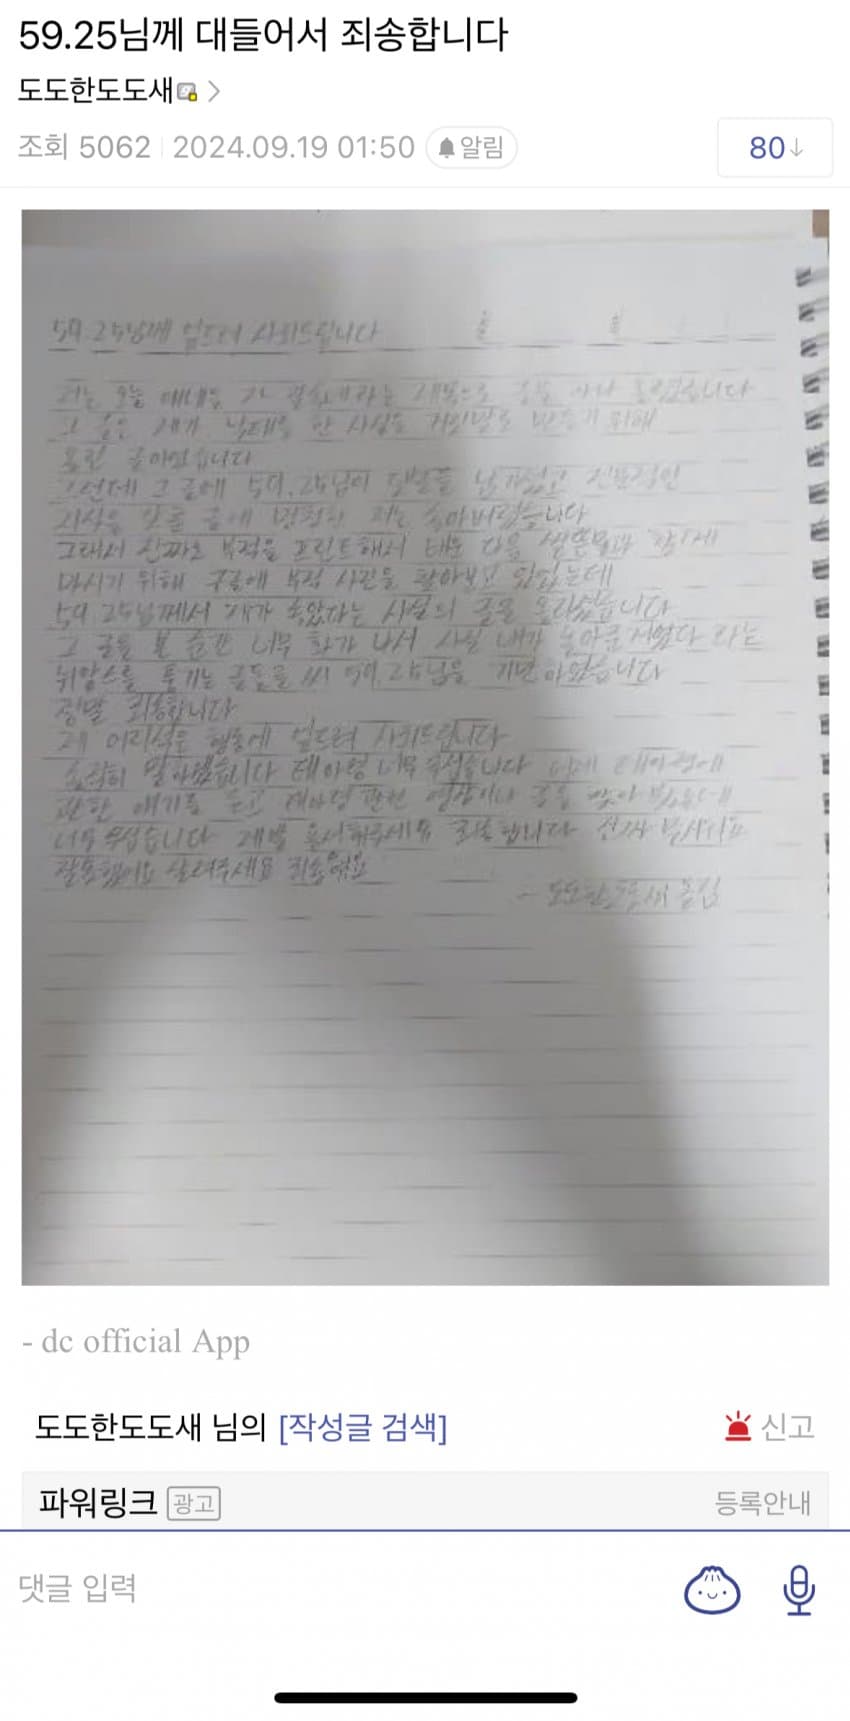 59.25님께 대들어서 죄송합니다
도도한도도새
조회 5062 2024.09.19 01:50 알림
80
59.25님께 엎드려 사죄드립니다
저는 오늘 라는 제목으로 글을 하나 올렸습니다
그 글은 제가 한 사실을 거짓말로 만들기 위해
올린 글이었습니다
그런데 그 글에 59.25님이 댓글을 남기셨고 전문적인
지식을 갖춘 글에 멍청한 저는 속아버렸습니다
그래서 진짜로 부적을 프린트해서 태운 다음 함께
마시기 위해 구글에 부적 사진을 찾아보고 있었는데
59.25님께서 제가 속았다는 사실의 글을 올리셨습니다
그 글을 본 순간 너무 화가 나서 사실 내가 라는
뉘앙스를 풍기는 글들을 써 59.25님을 기만하였습니다
정말 죄송합니다
제 어리석은 행동에 엎드려 사죄드립니다
솔직히 말하겠습니다 태아령 너무 무섭습니다 어제 태아령에
관한 얘기를 듣고 태아령 관련 영상이나 글을 찾아 봤는데
너무 무섭습니다 제발 용서해주세요 죄송합니다 진짜
잘못했어요 살려주세요 죄송해요
- 도도한도도새 올림
- dc official App
도도한도도새 님의 [작성글 검색]
신고
파워링크 광고
등록안내
댓글 입력